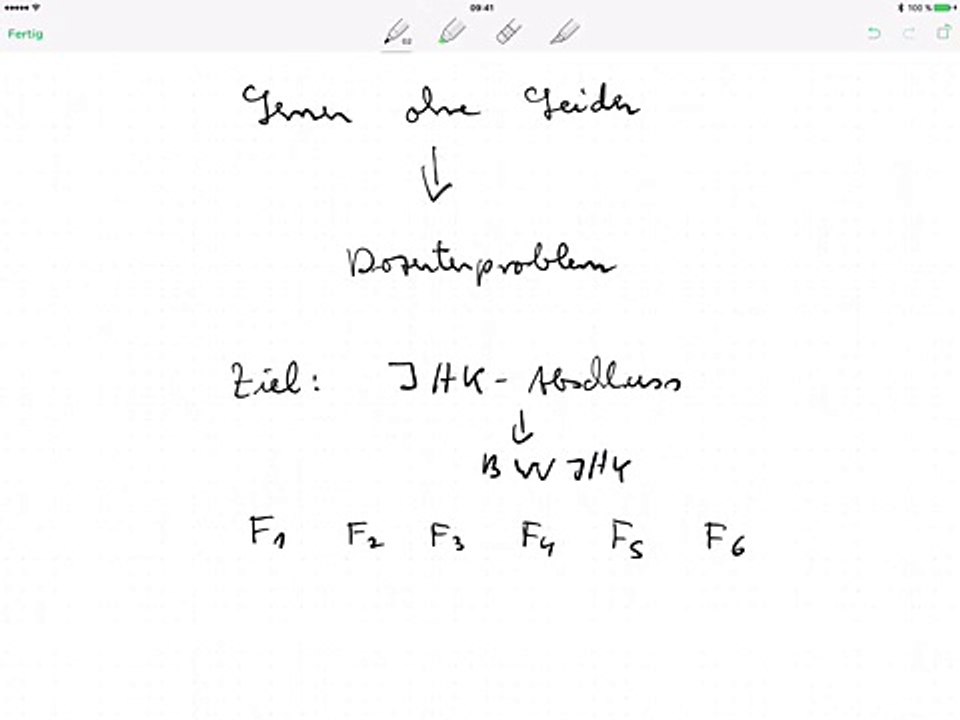 09:41
100 %
Fertig
02
Lernen ohne Leiden
Dozentenproblem
Ziel: IHK - Abschluss
BW IHK
F1 F2 F3 F4 F5 F6